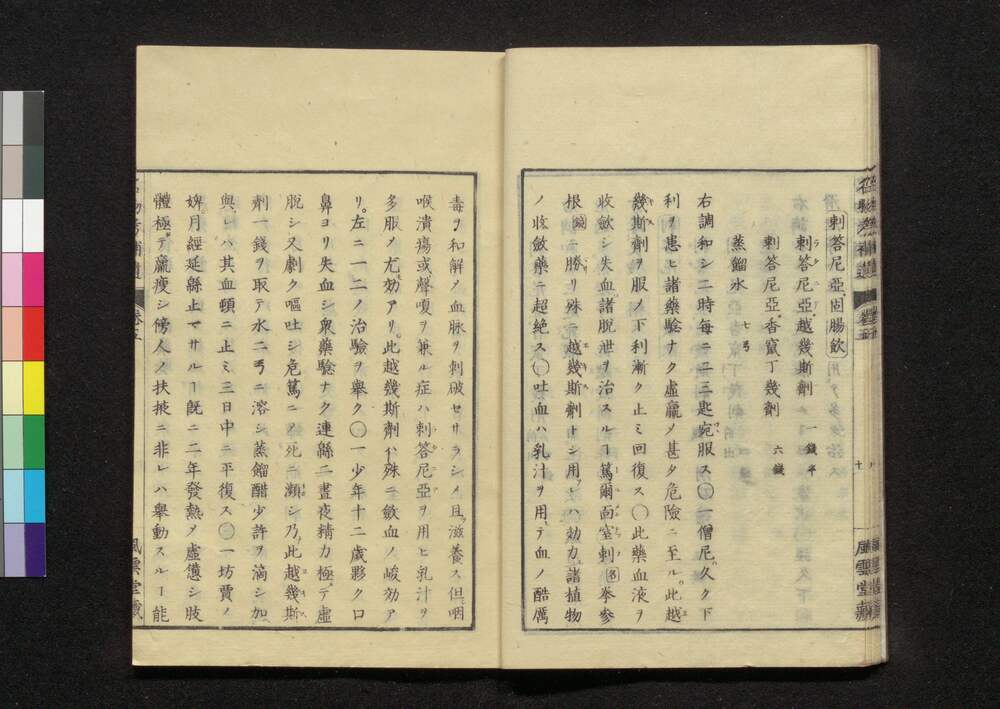 刺答尼亞固腸飲
刺答尼亞越幾斯劑 一錢半
刺答尼亞香竄丁幾劑 六錢
蒸餾水 七弓
右調和シ二時每ニ二三匙宛服ス〇一僧尼久ク下
利ヲ患ヒ諸藥驗ナク虛羸メ甚タ危險ニ至ル此越
幾斯劑ヲ服メ下利漸ク止ミ回復ス〇此藥血液ヲ
收斂シ失血諸脫泄ヲ治スルヿ篤爾面窒剌名拳參
根ニ勝リ殊ニ越幾斯劑トシ用レハ効力諸植物
ノ收斂藥ニ超絕ス〇吐血ハ乳汁ヲ用テ血ノ酷厲
毒ヲ和解メ血脉ヲ刺破セサラシメ且滋養ス但咽
喉潰瘍或聲嗄ヲ兼ル症ハ刺答尼亞ヲ用ヒ乳汁ヲ
多服メ尤効アリ此越幾斯劑ハ殊ニ斂血ノ峻効ア
リ左ニ一二ノ治驗ヲ舉ク〇一少年十二歲夥ク口
鼻ヨリ失血シ衆藥驗ナク連縣二晝夜精力極テ虛
脫シ又劇ク嘔吐シ危篤ニメ死ニ瀕シ乃此越幾斯
劑一錢ヲ取テ水二弓ニ溶シ蒸餾醋少許ヲ滴シ加
與レハ其血頓ニ止ミ三日中ニ平復ス〇一坊賈ノ
婢月經延縣止マサルヿ旣ニ二年發熱メ虛憊シ肢
體極テ羸瘦シ傍人ノ扶掖ニ非レハ舉動スルヿ能
卷五
風雲堂藏
十